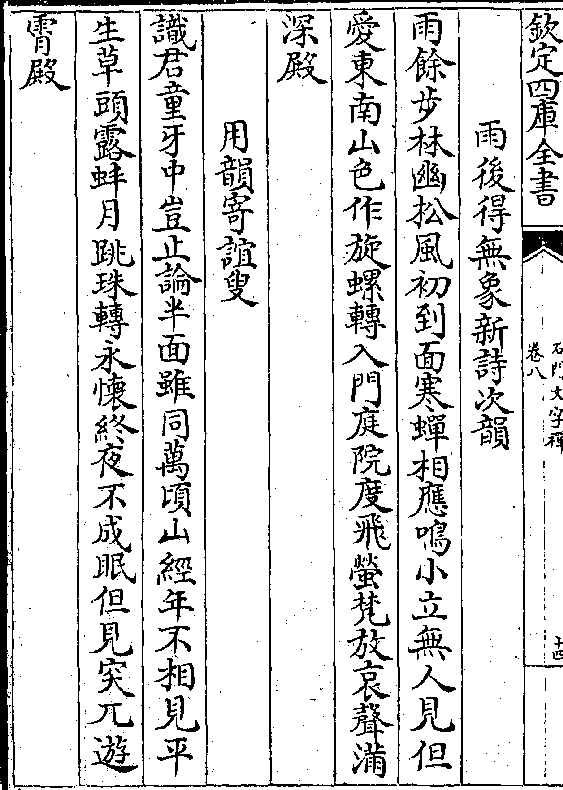 欽定四庫全書
石門文字禪
卷八
十四
雨後得無象新詩次韻
雨餘步林幽松風初到面寒蟬相應鳴小立無人見但
愛東南山色作旋螺轉入門庭院度飛螢梵放哀聲滿
深殿
用韻寄誼叟
識君童牙中豈止論半面雖同萬頃山經年不相見平
生草頭露蚌月跳珠轉永懷終夜不成眠但見突兀遊
霄殿